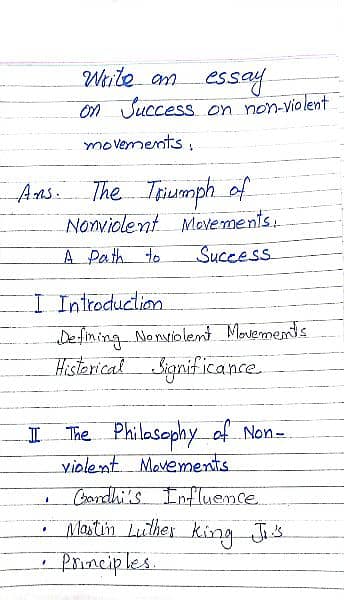 Write an essay
on Success on non-violent
movements.
Ans. The Triumph of
Nonviolent Movements.
A Path to Success
I Introduction
Defining Nonviolent Movements
Historical Significance
II The Philosophy of Non-
violent Movements
• Gandhi's Influence
• Mastin Luther King Jr.'s
• Principles.